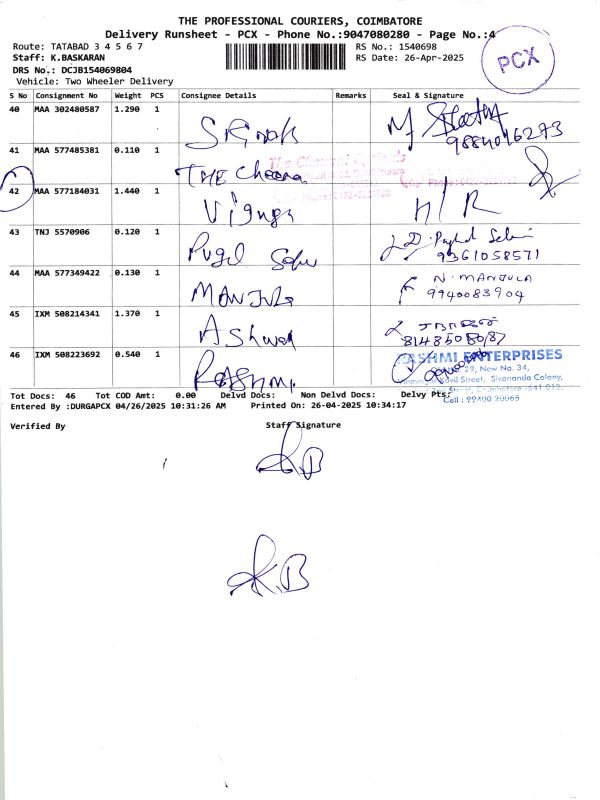 THE PROFESSIONAL COURIERS, COIMBATORE
Delivery Runsheet - PCX - Phone No.:9047080280 - Page No.:4
Route: TATABAD 3 4 5 6 7
Staff: K.BASKARAN
DRS No.: DCJB154069804
Vehicle: Two Wheeler Delivery
RS No.: 1540698
RS Date: 26-Apr-2025
PCX
S No Consignment No Weight PCS Consignee Details Remarks Seal & Signature
40 MAA 302480587 1.290 1
9884016273
41 MAA 577485381 0.110 1 THE
42 MAA 577184031 1.440 1 N/R
43 TNJ 5570906 0.120 1 Pugal
9361058571
44 MAA 577349422 0.130 1 MANJULA N. MANJULA
9940083904
45 IXM 508214341 1.370 1 Ashwak
8148508087
46 IXM 508223692 0.540 1 RASHMI RASHMI ENTERPRISES
29, New No. 34,
Street, Sivananda Colony,
Coimbatore - 641 012.
Cell : 99400 20065
Tot Docs: 46 Tot COD Amt: 0.00 Delvd Docs: Non Delvd Docs: Delvy Pts:
Entered By :DURGAPCX 04/26/2025 10:31:26 AM Printed On: 26-04-2025 10:34:17
Verified By Staff Signature
K.B
K.B